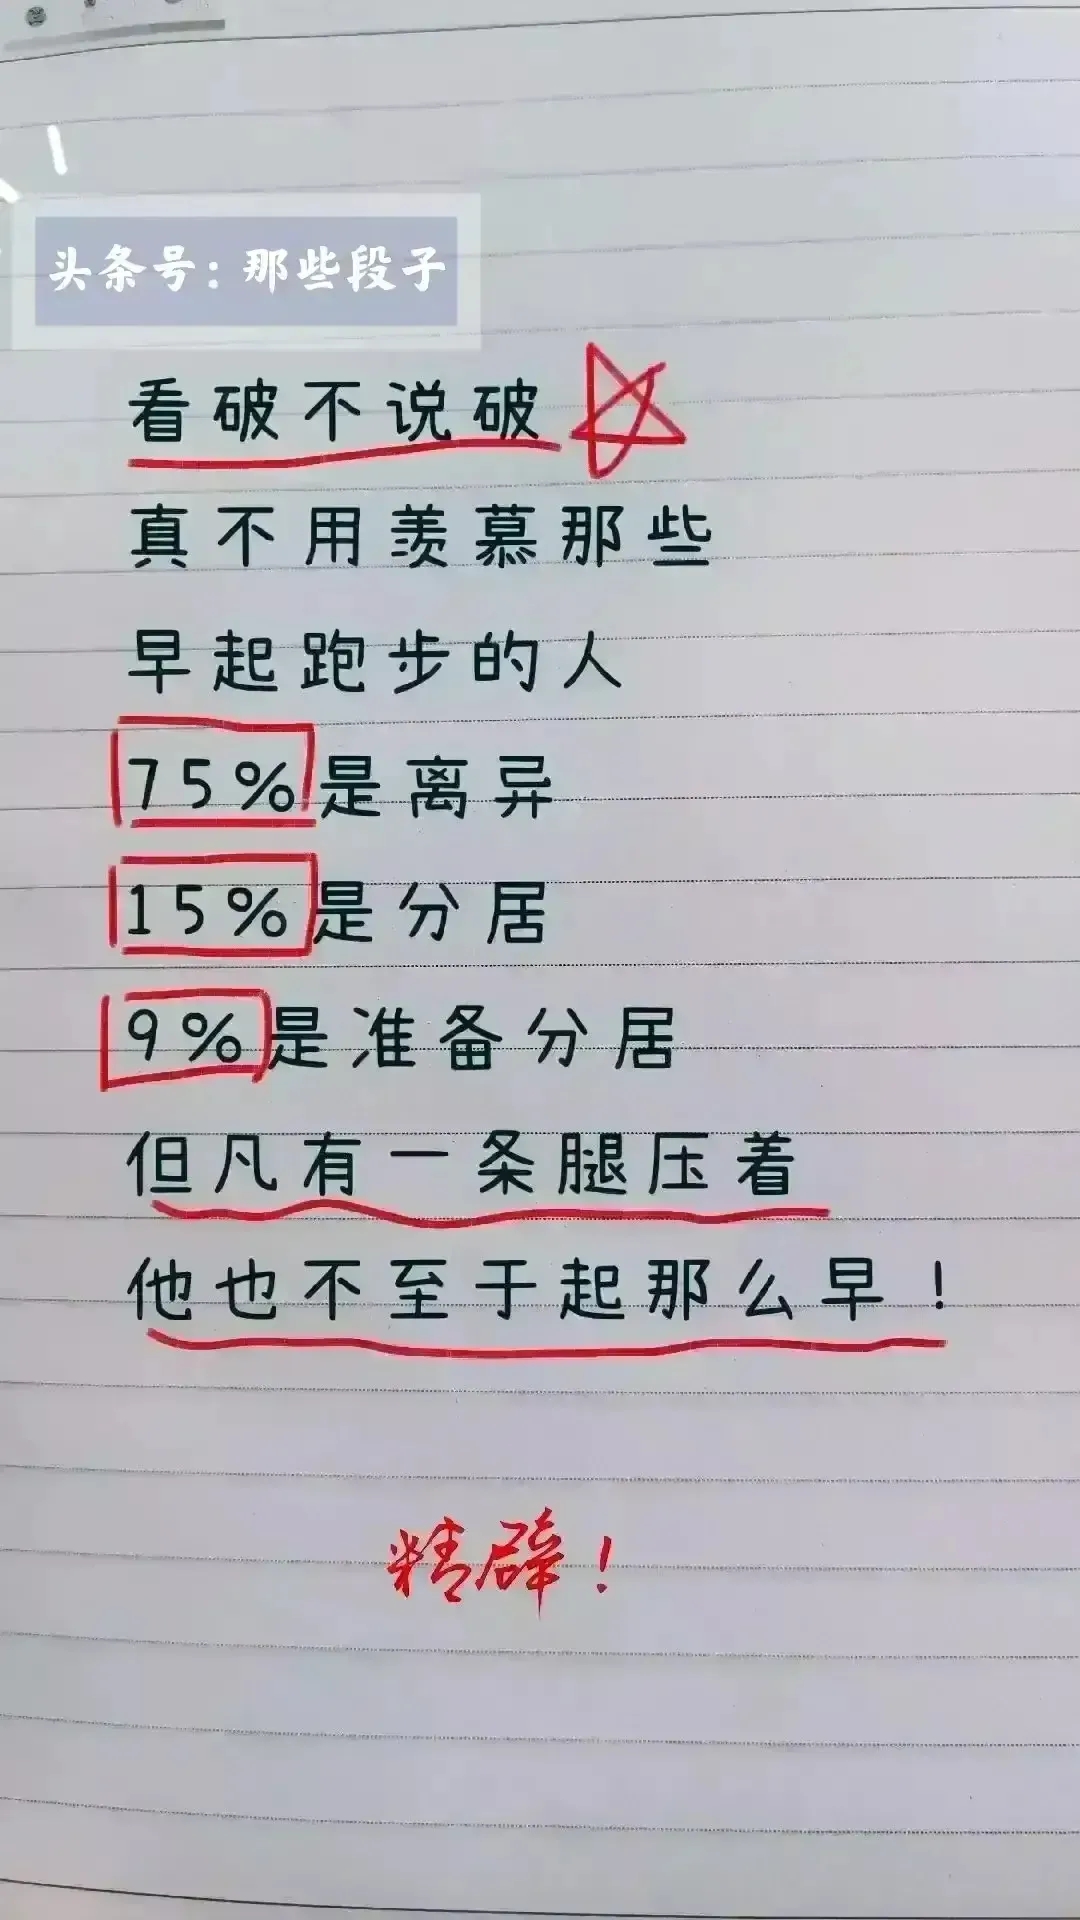 头条号：那些段子
看破不说破
真不用羡慕那些
早起跑步的人
75%是离异
15%是分居
9%是准备分居
但凡有一条腿压着
他也不至于起那么早！
精辟！